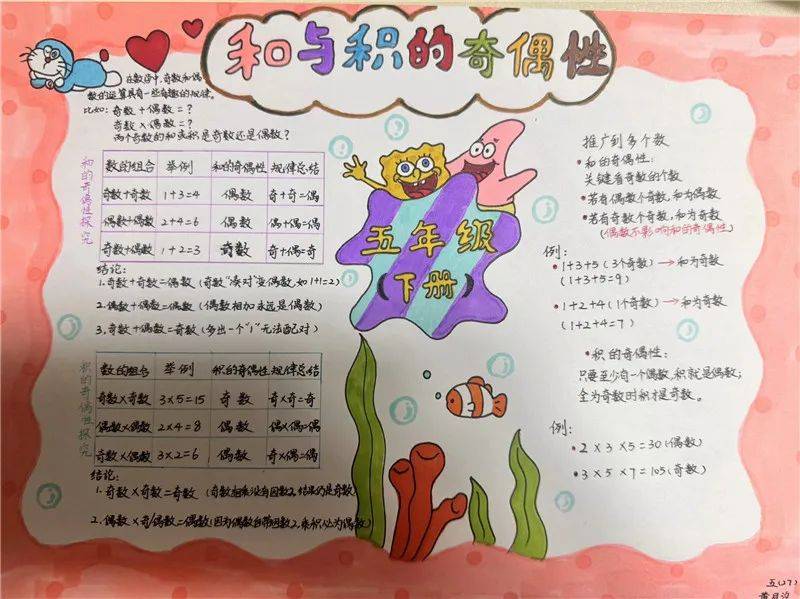 和与积的奇偶性
在数学中,奇数和偶
数的运算具有一些有趣的规律。
比如: 奇数 + 偶数 = ?
奇数 × 偶数 = ?
两个奇数的和或积是奇数还是偶数?
和的奇偶性探究
数的组合 举例 和的奇偶性 规律总结
奇数+奇数 1+3=4 偶数 奇+奇=偶
偶数+偶数 2+4=6 偶数 偶+偶=偶
奇数+偶数 1+2=3 奇数 奇+偶=奇
结论:
1.奇数+奇数=偶数(奇数"凑对"变偶数,如1+1=2)
2.偶数+偶数=偶数(偶数相加永远是偶数)
3.奇数+偶数=奇数(多出一个"1"无法配对)
积的奇偶性探究
数的组合 举例 积的奇偶性 规律总结
奇数×奇数 3×5=15 奇数 奇×奇=奇
偶数×偶数 2×4=8 偶数 偶×偶=偶
奇数×偶数 3×2=6 偶数 奇×偶=偶
结论:
1.奇数×奇数=奇数(奇数相乘没有因数2,结果仍是奇数)
2.偶数×奇/偶数=偶数(因为偶数自带因数2,乘积必为偶数)
五年级
(下册)
推广到多个数
• 和的奇偶性:
关键看奇数的个数
• 若有偶数个奇数,和为偶数
• 若有奇数个奇数,和为奇数
(偶数不影响和的奇偶性)
例:
• 1+3+5(3个奇数)→和为奇数
(1+3+5=9)
• 1+2+4(1个奇数)→和为奇数
(1+2+4=7)
• 积的奇偶性:
只要至少有一个偶数,积就是偶数;
全为奇数时积才是奇数。
例:
• 2×3×5=30(偶数)
• 3×5×7=105(奇数)
五(27)
黄